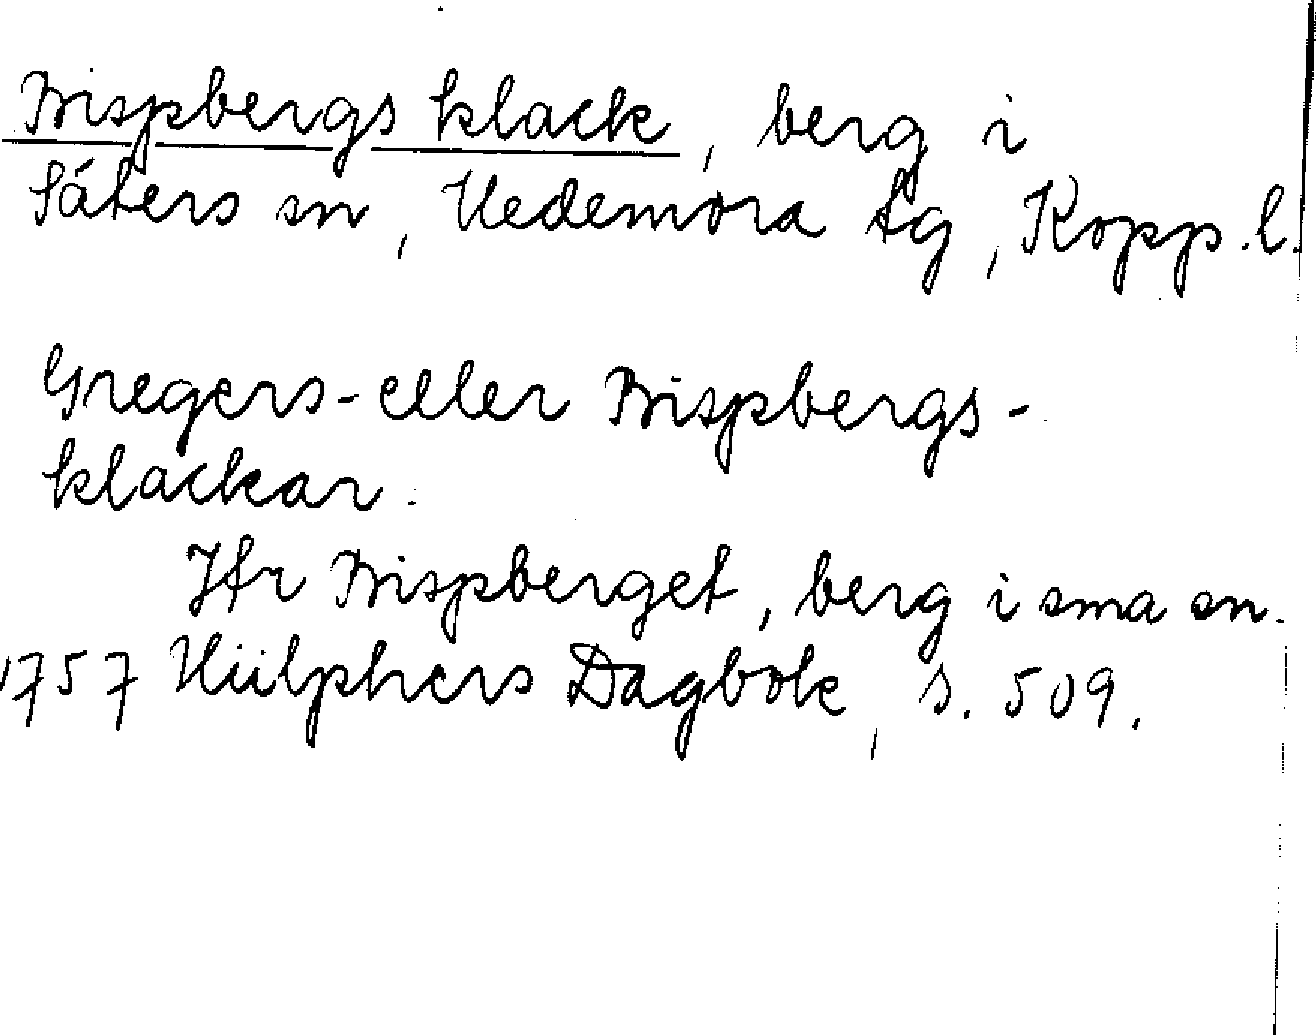 Bispbergs klack, berg i
Säters sn, Hedemora tg, Kopp. l.
Gregers- eller Bispbergs-
klackar.
Jfr Bispberget, berg i sma sn.
1757 Hülphers Dagbok, s. 509.